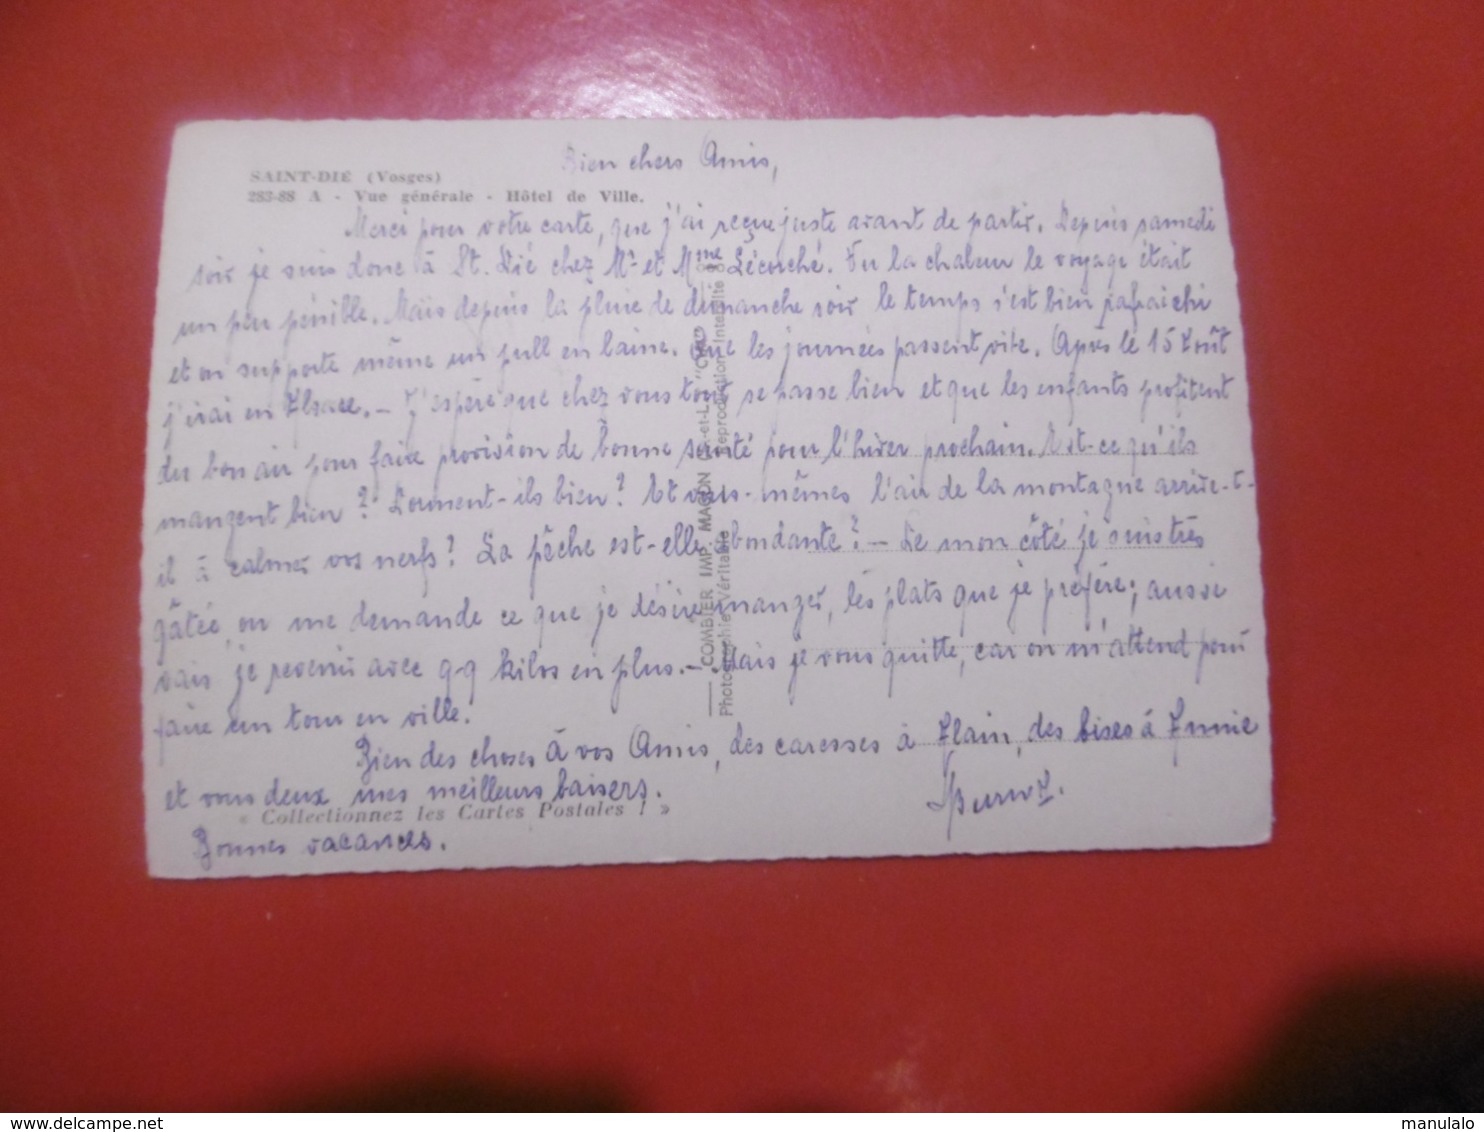 Bien chers Amis,
SAINT-DIÉ (Vosges)
283-88 A - Vue générale - Hôtel de Ville.
Merci pour votre carte, que j'ai reçue juste avant de partir. Depuis samedi
soir je suis donc à St. Dié chez Mr et Mme Lécorché. Vu la chaleur le voyage était
un peu pénible. Mais depuis la pluie de dimanche soir le temps s'est bien rafraichi
et on supporte même un pull en laine. Que les journées passent vite. Après le 15 Août
j'irai en Alsace. — J'espère que chez vous tout se passe bien et que les enfants profitent
du bon air pour faire provision de bonne santé pour l'hiver prochain. Est-ce qu'ils
mangent bien ? Dorment-ils bien ? Et vous-mêmes l'air de la montagne arrive-t-
il à calmer vos nerfs ? La pêche est-elle abondante ? — De mon côté je suis très
gâtée, on me demande ce que je désire manger, les plats que je préfère; aussi
vais je revenir avec q-q kilos en plus. — Mais je vous quitte, car on m'attend pour
faire un tour en ville.
Bien des choses à vos Amis, des caresses à Alain, des bises à Annie
et vous deux mes meilleurs baisers.
« Collectionnez les Cartes Postales ! »
Bonnes vacances.
COMBIER IMP. MACON (S.-et-L.) "CIM"
Photographie Véritable - Reproduction Interdite
delcampe.net
manulalo